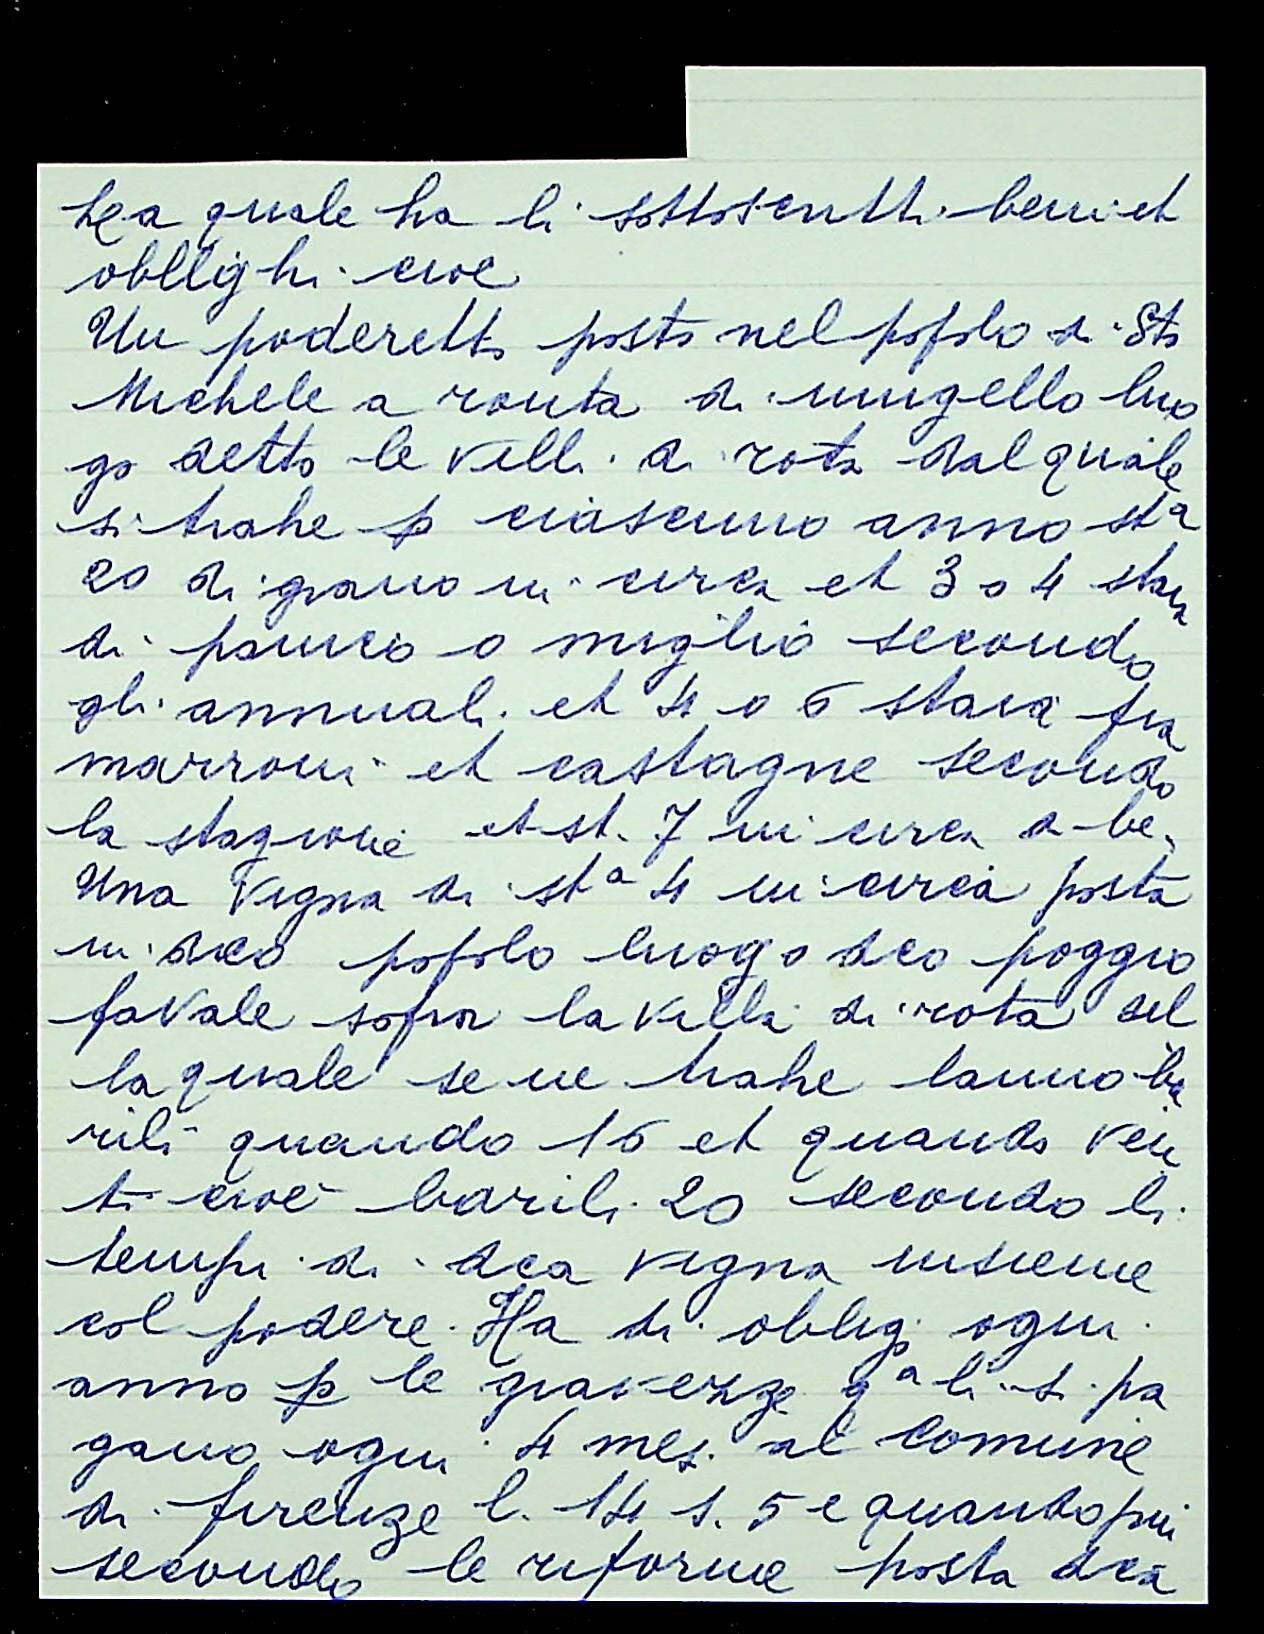 La quale ha li sottoscritti beni et
obllighi cioe
Un poderetto posto nel popolo di Sto
Michele a ronta di mugello luo
go detto le valli di rota dal quale
si trahe p ciascuno anno sta
20 di grano in circa et 3 o 4 staia
di panico o miglio secondo
gli annuali et 4 o 6 staia fra
marroni et castagne secondo
la stagione et st. 7 in circa di be.
Una vigna di sta 4 in circa posta
in dco popolo luogo dco poggio
favale sopra la valli di rota del
la quale se ne trahe lanno ba
rili quando 16 et quando ven
ti cioè barili 20 secondo li
tempi di dca vigna insieme
col podere. Ha di obligo ogni
anno p le gravezze qali si pa
gano ogni 4 mesi al comune
di firenze l. 14 s. 5 e quando piu
secondo le riforme posta dca